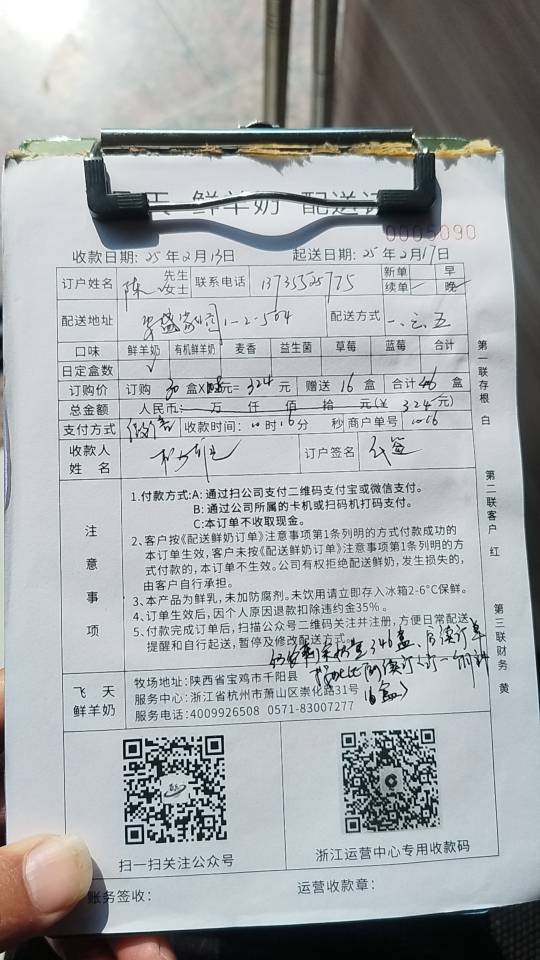 鲜羊奶 配送
0005090
收款日期: 25 年 2 月 13 日 起送日期: 25 年 2 月 17 日
订户姓名 陈 先生 女士 联系电话 新单 早
续单 晚
配送地址 1-2-504 配送方式 一、三、五
口味 鲜羊奶 有机鲜羊奶 麦香 益生菌 草莓 蓝莓 合计
日定盒数 ✓
订购价 订购 30 盒X 元= 324 元 赠送 16 盒 合计 46 盒
总金额 人民币: 万 仟 佰 拾 元(¥ 324 元)
支付方式 微信 收款时间: 10 时 16 分 秒 商户单号 1016
收款人姓名 订户签名 代签
注意事项
1.付款方式:A: 通过扫公司支付二维码支付宝或微信支付。
B: 通过公司所属的卡机或扫码机打码支付。
C:本订单不收取现金。
2、客户按《配送鲜奶订单》注意事项第1条列明的方式付款成功的
本订单生效，客户未按《配送鲜奶订单》注意事项第1条列明的方
式付款的，本订单不生效。公司有权拒绝配送鲜奶，发生损失的，
由客户自行承担。
3、本产品为鲜乳，未加防腐剂。未饮用请立即存入冰箱2-6℃保鲜。
4、订单生效后，因个人原因退款扣除违约金35%。
5、付款完成订单后，扫描公众号二维码关注并注册，方便日常配送
提醒和自行起送，暂停及修改配送方式。
飞天鲜羊奶
牧场地址: 陕西省宝鸡市千阳县
服务中心: 浙江省杭州市萧山区崇化路31号
服务电话: 4009926508 0571-83007277
16盒
扫一扫关注公众号
浙江运营中心专用收款码
账务签收:
运营收款章:
第一联存根 白
第二联客户 红
第三联财务 黄